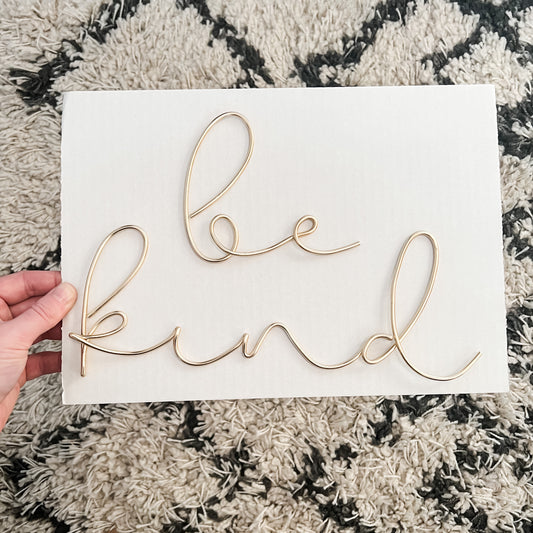 be
kind